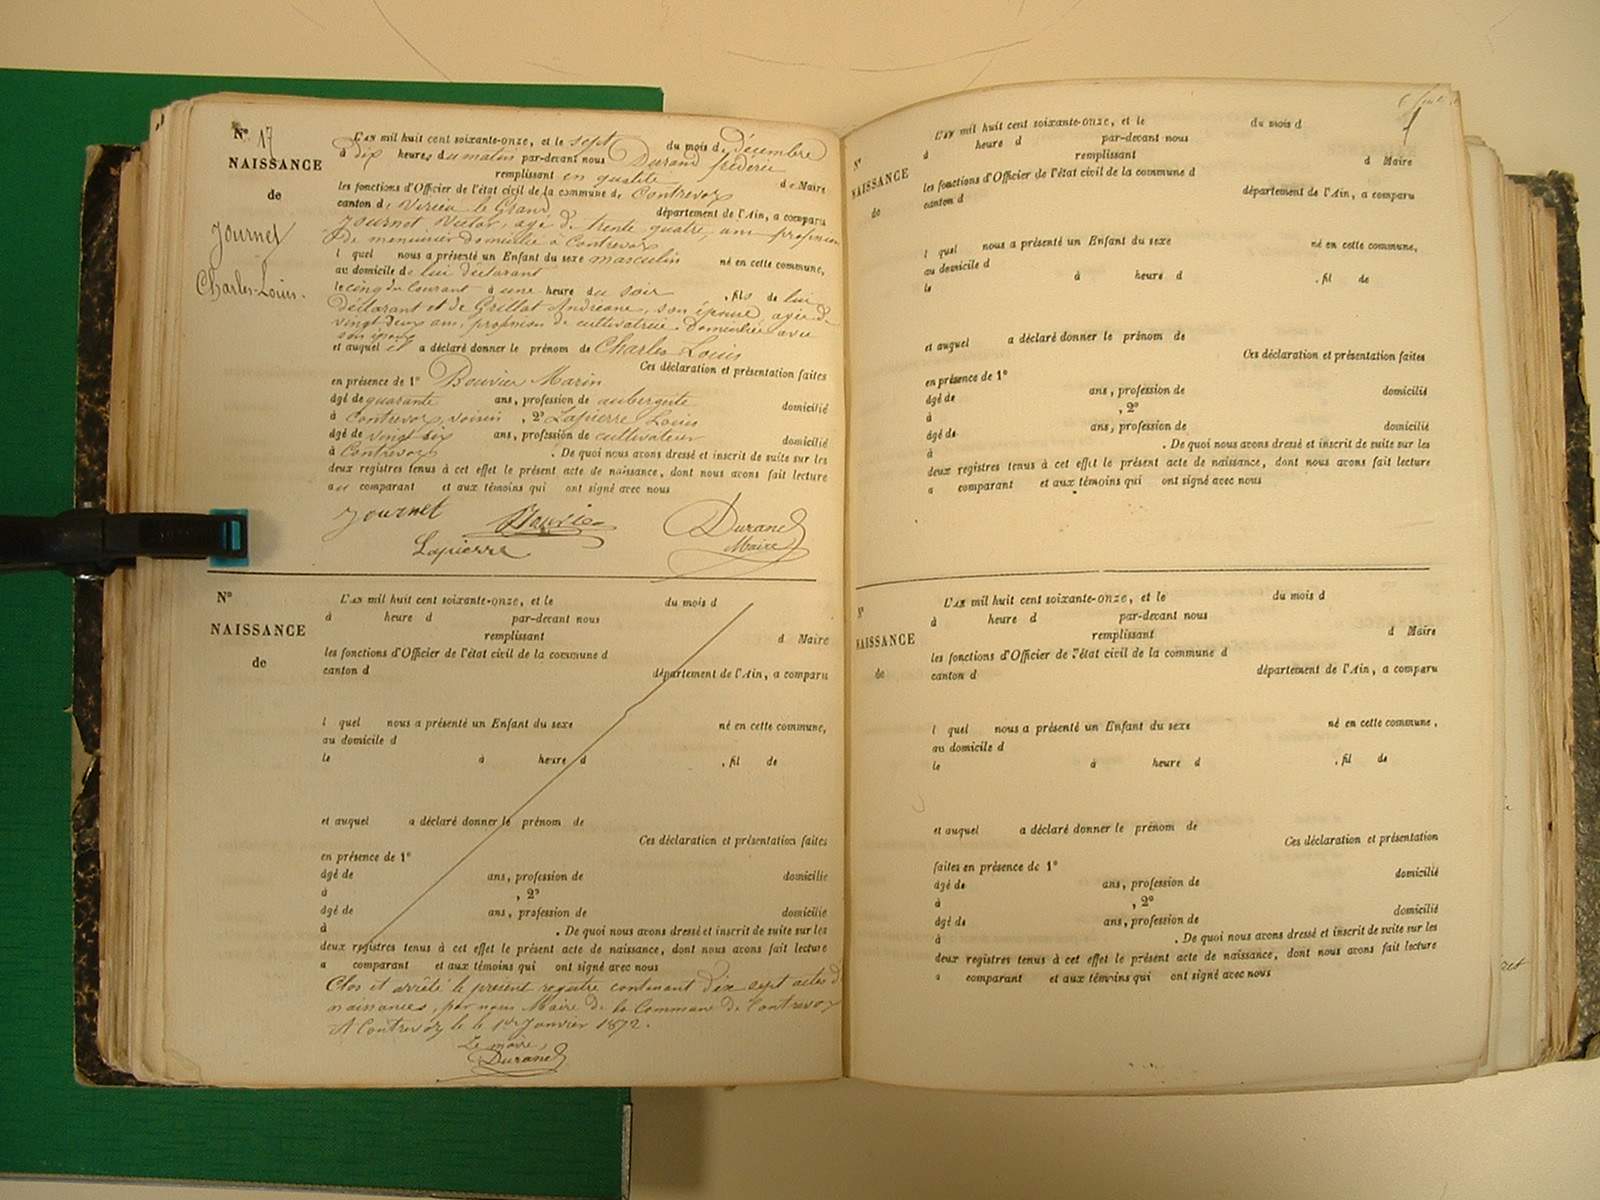 N° 17
NAISSANCE
de
Journet
Charles-Louis.
L'AN mil huit cent soixante-onze, et le sept du mois de décembre
à dix heures du matin par-devant nous Durand frédéric
remplissant en qualité de Maire
les fonctions d'Officier de l'état civil de la commune de Contrevoz
canton de Virieu le Grand département de l'Ain, a comparu
Journet Victor, agé de trente quatre, ans profession
de menuisier domicilié à Contrevoz
lequel nous a présenté un Enfant du sexe masculin né en cette commune,
au domicile de lui déclarant
le cinq du Courant à une heure du soir, fils de lui
déclarant et de Grillot Andréane, son épouse, agée de
vingt deux ans, profession de cultivatrice domiciliée avec
son époux
et auquel il a déclaré donner le prénom de Charles Louis
Ces déclaration et présentation faites
en présence de 1° Bouvier Marin
âgé de quarante ans, profession de aubergiste domicilié
à Contrevoz, voisin, 2° Lapierre Louis
âgé de vingt six ans, profession de cultivateur domicilié
à Contrevoz. De quoi nous avons dressé et inscrit de suite sur les
deux registres tenus à cet effet le présent acte de naissance, dont nous avons fait lecture
au comparant et aux témoins qui ont signé avec nous
Journet Bouvier Durand
Lapierre Maire
N°
NAISSANCE
de
L'AN mil huit cent soixante-onze, et le du mois d
à heure d par-devant nous
remplissant d Maire
les fonctions d'Officier de l'état civil de la commune d
canton d département de l'Ain, a comparu
l quel nous a présenté un Enfant du sexe né en cette commune,
au domicile d
le à heure d , fil de
et auquel a déclaré donner le prénom de
Ces déclaration et présentation faites
en présence de 1°
âgé de ans, profession de domicilié
à , 2°
âgé de ans, profession de domicilié
à . De quoi nous avons dressé et inscrit de suite sur les
deux registres tenus à cet effet le présent acte de naissance, dont nous avons fait lecture
a comparant et aux témoins qui ont signé avec nous
Clos et arrêté le présent registre contenant dix sept actes de
naissances, par nous Maire de la Commune de Contrevoz
A Contrevoz le 1er Janvier 1872.
Le maire,
Durand
N°
NAISSANCE
de
L'AN mil huit cent soixante-onze, et le du mois d
à heure d par-devant nous
remplissant d Maire
les fonctions d'Officier de l'état civil de la commune d
canton d département de l'Ain, a comparu
l quel nous a présenté un Enfant du sexe né en cette commune,
au domicile d
le à heure d , fil de
et auquel a déclaré donner le prénom de
Ces déclaration et présentation faites
en présence de 1°
âgé de ans, profession de domicilié
à , 2°
âgé de ans, profession de domicilié
à . De quoi nous avons dressé et inscrit de suite sur les
deux registres tenus à cet effet le présent acte de naissance, dont nous avons fait lecture
a comparant et aux témoins qui ont signé avec nous
N°
NAISSANCE
de
L'AN mil huit cent soixante-onze, et le du mois d
à heure d par-devant nous
remplissant d Maire
les fonctions d'Officier de l'état civil de la commune d
canton d département de l'Ain, a comparu
l quel nous a présenté un Enfant du sexe né en cette commune,
au domicile d
le à heure d , fil de
et auquel a déclaré donner le prénom de
Ces déclaration et présentation
faites en présence de 1°
âgé de ans, profession de domicilié
à , 2°
âgé de ans, profession de domicilié
à . De quoi nous avons dressé et inscrit de suite sur les
deux registres tenus à cet effet le présent acte de naissance, dont nous avons fait lecture
a comparant et aux témoins qui ont signé avec nous